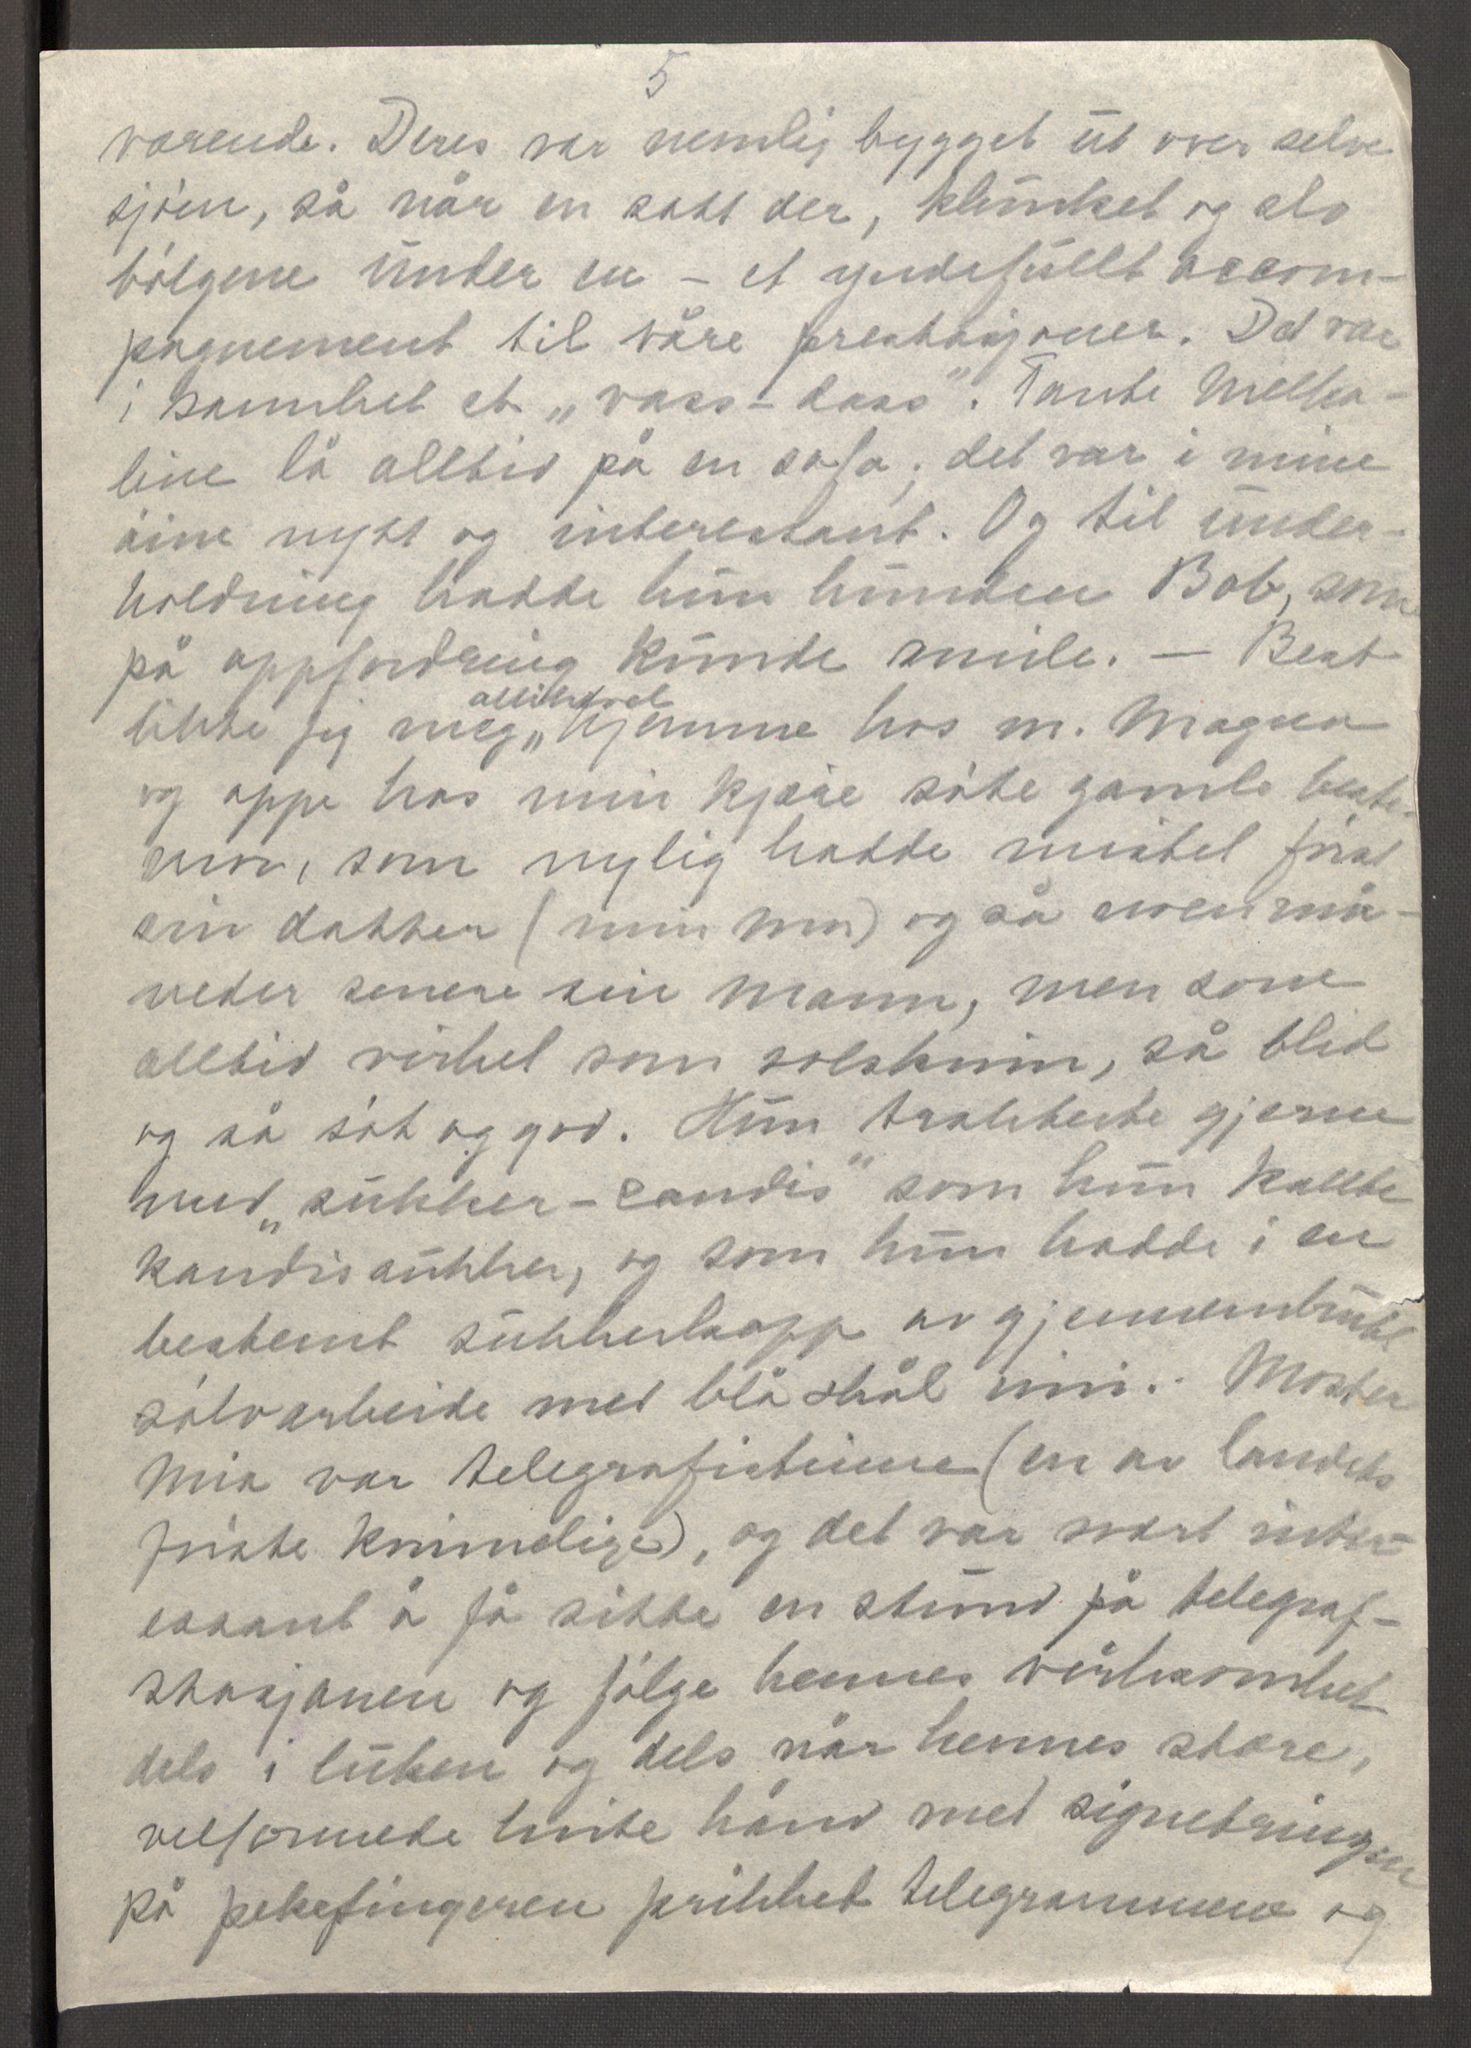 5
varende. Deres var nemlig bygget ut over selve
sjøen, så når en satt der, klunket og slo
bølgene under en – et yndefullt accom-
pagnement til våre prestasjoner. Det var
i sannhet et „vass-dass". Tante Metha-
line lå alltid på en sofa; det var i mine
øine nytt og interessant. Og til under-
holdning hadde hun hunden Bob, som
på oppfordring kunde smile. — Best
allikevel
likte jeg meg „ hjemme hos m. Magna
og oppe hos min kjære søte gamle beste-
mor, som nylig hadde mistet først
sin datter (min mor) og så noen må-
neder senere sin mann, men som
alltid virket som solskinn, så blid
og så søt og god. Hun trakterte gjerne
med „sukker-candis" som hun kallte
kandissukker, og som hun hadde i en
bestemt sukkerkopp av gjennembrutt
sølvarbeide med blå skål inni. Moster
Mia var telegrafistinne (en av landets
første kvinnelige), og det var svært inter-
essant å få sitte en stund på telegraf-
stasjonen og følge hennes virksomhet
dels i luken og dels når hennes store,
velformede hvite hånd med signetringen
på pekefingeren prikket telegrammene og